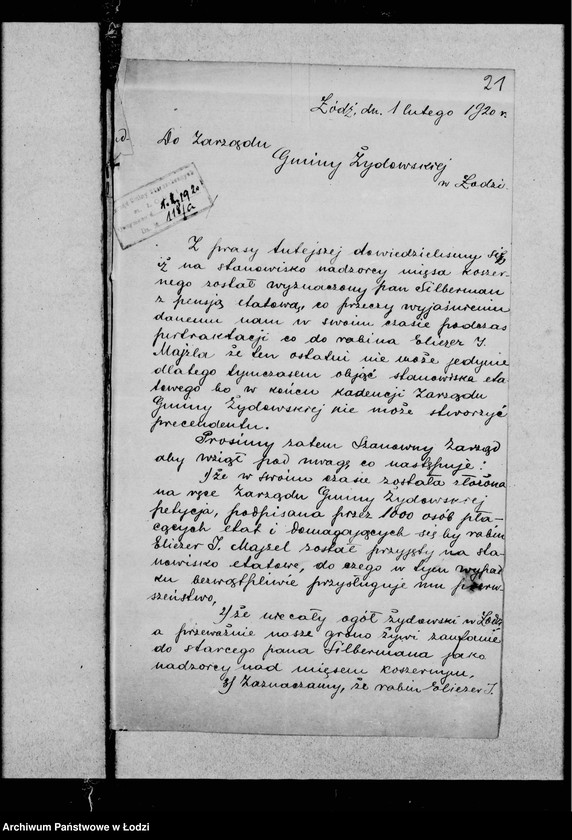 21
Łódź, dn. 1 lutego 1920 r.
Do Zarządu
Gminy Żydowskiej
w Łodzi.
118/a
Z prasy tutejszej dowiedzieliśmy się
iż na stanowisko nadzorcy mięsa koszer-
nego został wyznaczony pan Silberman
z pensją etatową, co przeczy wyjaśnieniu
danemu nam w swoim czasie podczas
pertraktacji co do rabina Eliezer I.
Majzla że ten ostatni nie może jedynie
dlatego tymczasem objąć stanowiska eta
towego bo w końcu kadencji Zarządu
Gminy Żydowskiej nie może stworzyć
precendentu.
Prosimy zatem Szanowny Zarząd
aby wziął pod uwagę co następuje:
1) że w swoim czasie została złożona
na ręce Zarządu Gminy Żydowskiej
petycja, podpisana przez 1000 osób pła-
cących etat i domagających się by rabin
Eliezer I. Majzel został przyjęty na sta-
nowisko etatowe, do czego w tym wypad
ku bezwątpliwie przysługuje mu pierw-
szeństwo,
2) że niecały ogół żydowski w Łodzi
a przeważnie nasze grono żywi zaufanie
do starcego pana Silbermana jako
nadzorcy nad mięsem koszernym,
3) Zaznaczamy, że rabin Eliezer I.
Archiwum Państwowe w Łodzi